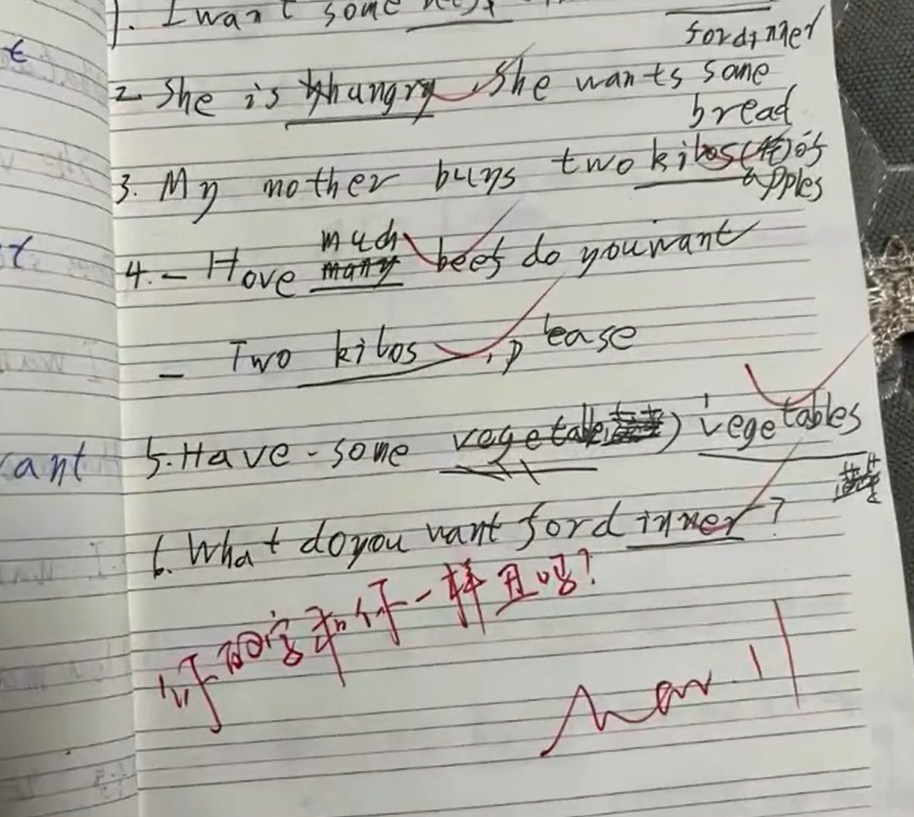 1. I want some
fordinner
2. She is hungry. She wants some
bread
3. My nother buys two kilos of
apples
4. - Hove much beef do you want
- Two kilos, please
5. Have some vegetables
6. What do you want for dinner?
你的字和你一样丑吗?